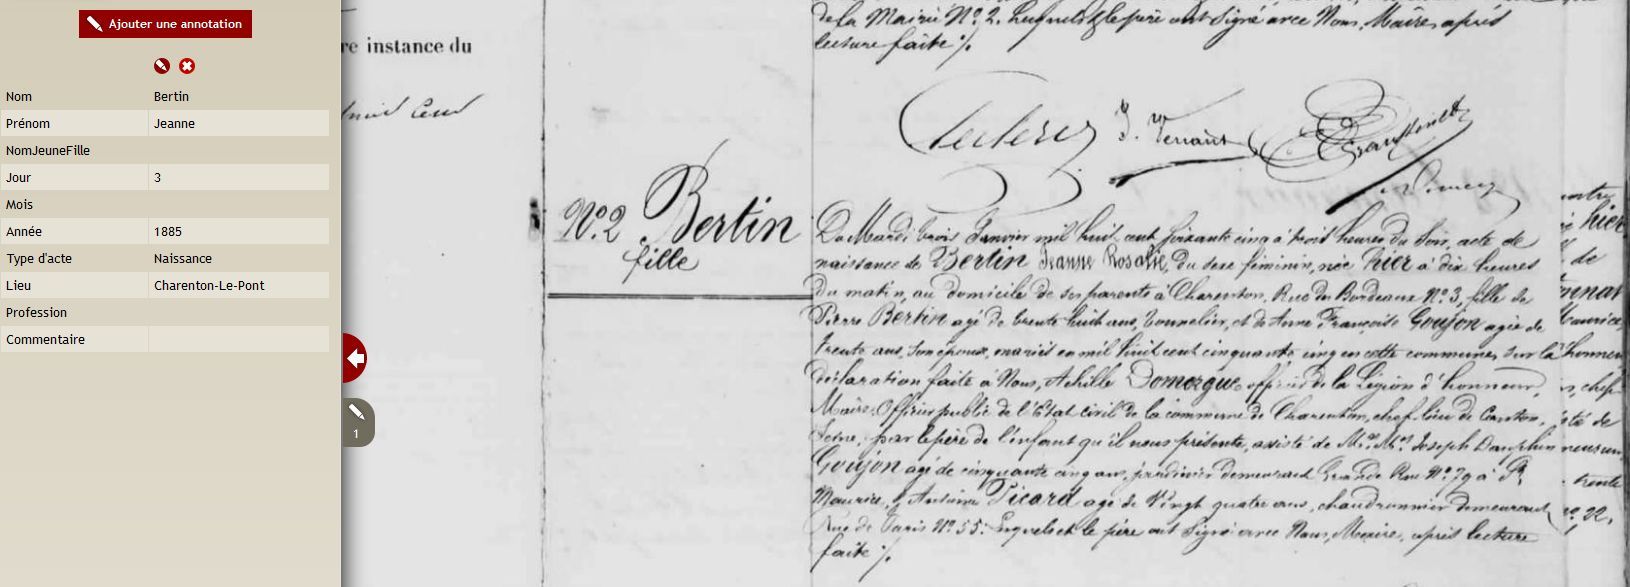 Ajouter une annotation
Nom Bertin
Prénom Jeanne
NomJeuneFille
Jour 3
Mois
Année 1885
Type d'acte Naissance
Lieu Charenton-Le-Pont
Profession
Commentaire
1
re instance du
de la Mairie No. 2. Lesquels et le père ont signé avec Nous, Maire, après
lecture faite ./.
No. 2 Bertin
fille
Du Mardi trois Janvier mil huit cent soixante cinq à trois heures du soir, acte de
naissance de Bertin Jeanne Rosalie, du sexe féminin, née hier à dix heures
du matin, au domicile de ses parents à Charenton, Rue de Bordeaux No. 3, fille de
Pierre Bertin agé de trente huit ans, tonnelier, et de Anne Françoise Goujon agée de
trente ans, son épouse, mariés en mil huit cent cinquante cinq en cette commune, sur la
déclaration faite à Nous, Achille Domergue officier de la Légion d'honneur,
Maire, Officier public de l'Etat civil de la commune de Charenton, chef lieu de Canton,
Seine, par le père de l'enfant qu'il nous présente, assisté de Mr. Mrs. Joseph Dauphin
Goujon agé de cinquante cinq ans, jardinier demeurant Grande Rue No. 79 à St.
Maurice, Antoine Picard agé de vingt quatre ans, chaudronnier demeurant
Rue de Paris No. 55. Lesquels et le père ont signé avec Nous, Maire, après lecture
faite ./.
hier
de